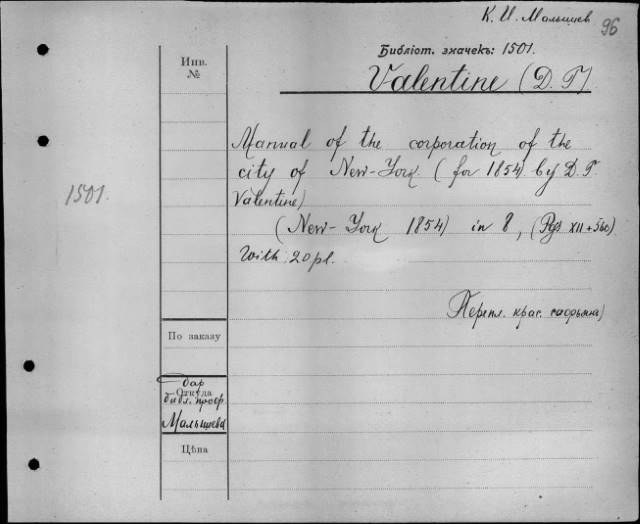 К. И. Малышев
96
Библіот. значекъ: 1501.
Valentine (D. T)
Инв.
№
Manual of the corporation of the
city of New-York. (for 1854) by D. T.
Valentine)
1501.
(New-York 1854) in 8, (Pgs XII + 560)
With 20 pl.
Перепл. крас.
По заказу
Дар
Откуда
библ. проф.
Малышева
Цѣна